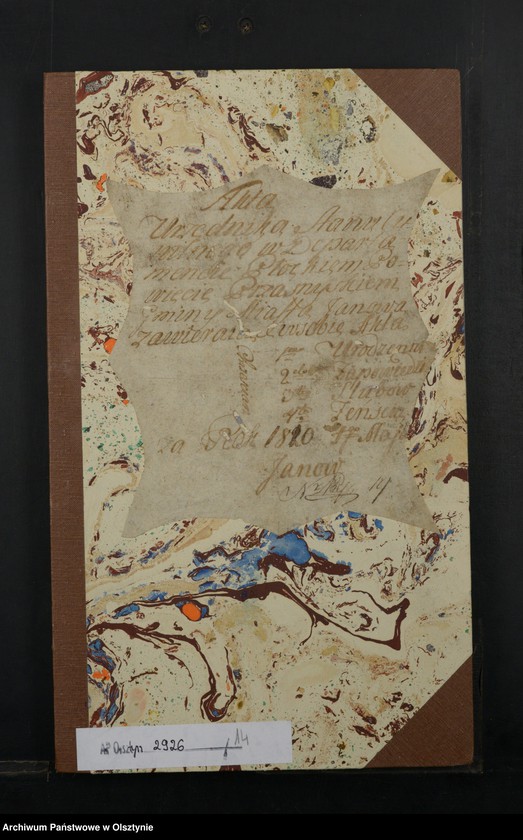 Akta
Urzędnika Stanu Cy
wilnego w Depar ta
mencie Płockiem Po
wiecie Przasnyskiem
Gminy Miasta Janowa
Zawieraią w sobie Akta
1mo Urodzenia
2do Zapowiedzi
3tio Slubow
4to Zensc
za Rok 1820
Janow
14
AP Olsztyn 2926 14
Archiwum Państwowe w Olsztynie